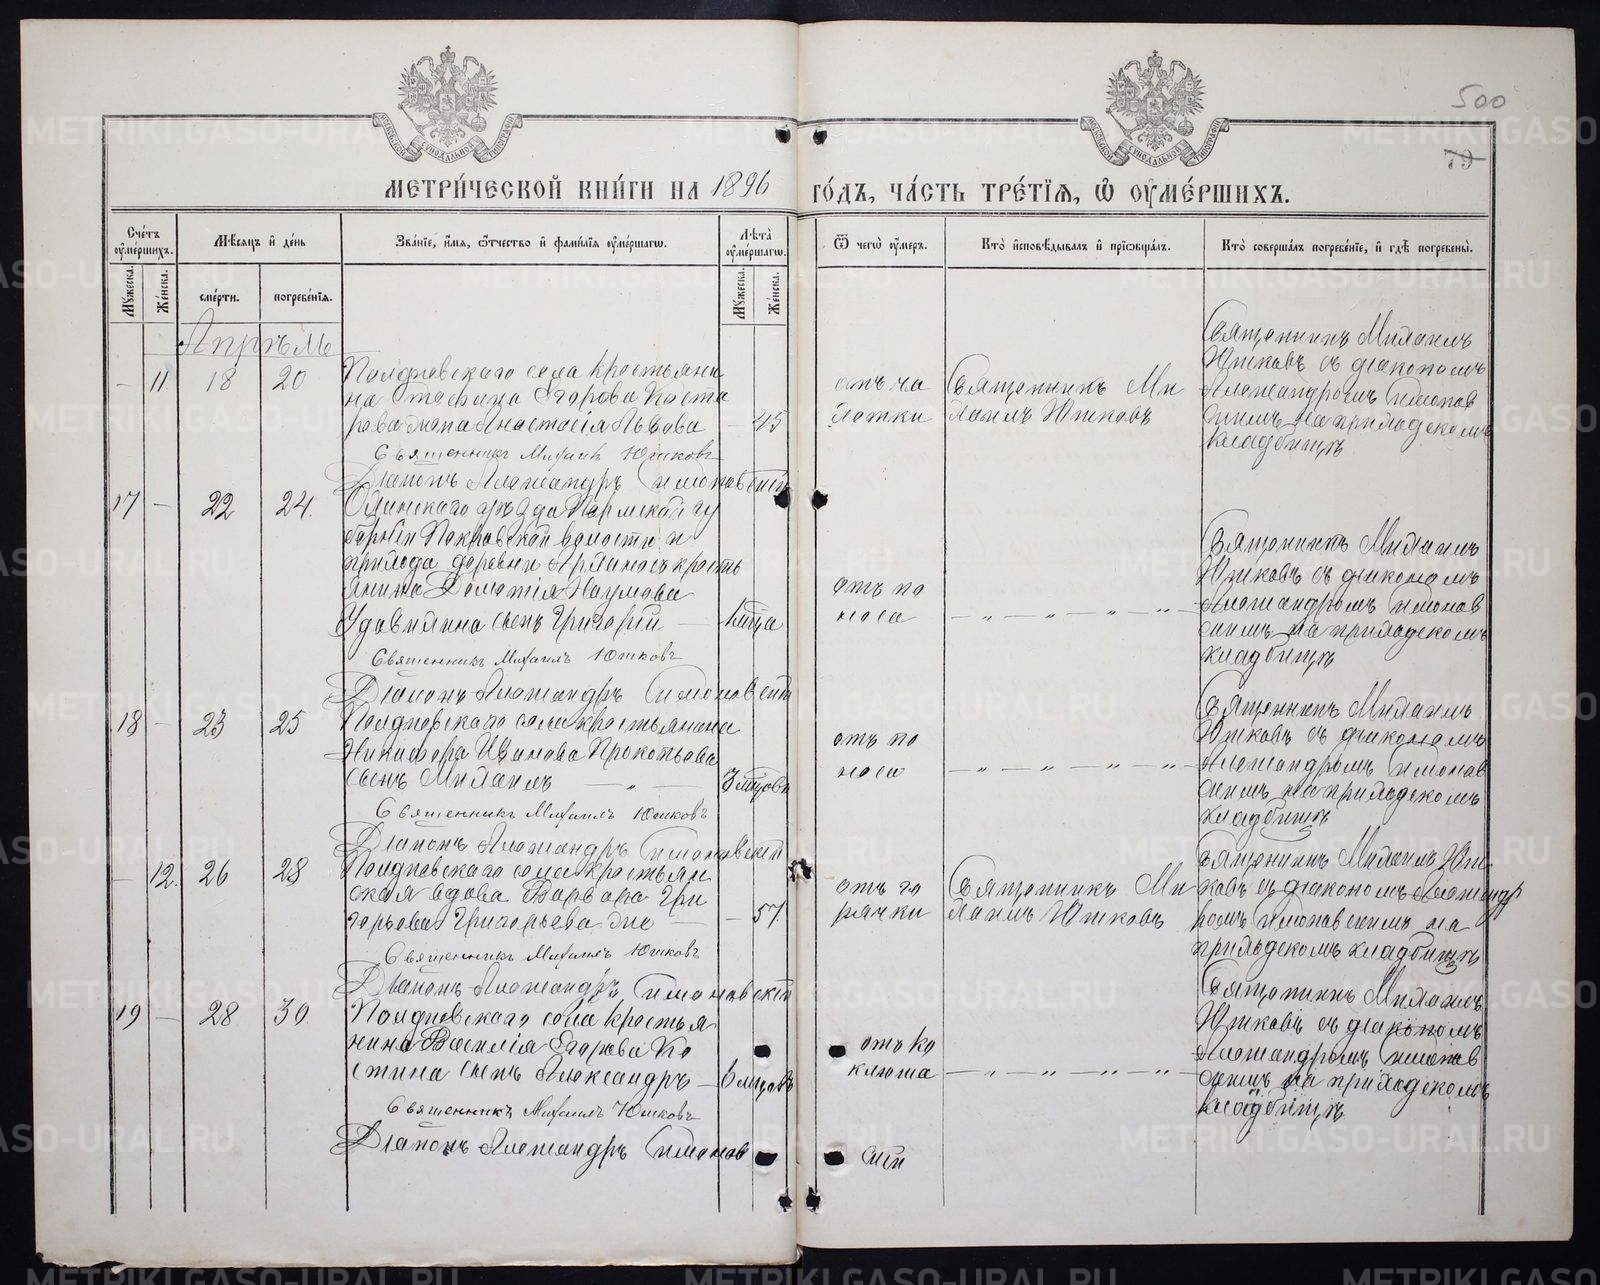 500
79
МЕТРИ́ЧЕСКОЙ КНИ́ГИ НА 1896 ГО́ДЪ, ЧА́СТЬ ТРЕ́ТІѦ, Ѡ ОУМЕ́РШИХЪ.
Сче́тъ оуме́ршихъ.
Му́жеска.
Же́нска.
Мѣ́сѧцъ и де́нь
сме́рти.
погребе́нїѧ.
Зва́нїе, и́мѧ, ѻ́тчество и фами́лїѧ оуме́ршагѡ.
Лѣ́та оуме́ршагѡ.
Му́жеска.
Же́нска.
Ѿ чегѡ̀ оу́меръ.
Кто̀ и҆сповѣ́дывалъ и прїѡбща́лъ.
Кто̀ соверша́лъ погребе́нїе, и гдѣ̀ погребены̀.
Апрѣль
– 11 18 20
Полдневскаго села крестьяни
на Егорова Коста
рева жена Анастасія Львова – 45
отъ ча
хотки
Священникъ Ми
хаилъ Юшковъ
Священникъ Михаилъ
Юшковъ съ діакономъ
Александромъ Симонов
скимъ на приходскомъ
кладбищѣ
Священникъ Михаилъ Юшковъ
Діаконъ Александръ Симоновскій
17 – 22 24.
Оханскаго уѣзда Пермской гу
берніи Покровской волости и
прихода деревни кресть
янина Наумова
сынъ Григорій –
отъ по
носа
– „ – „ – „ – „ –
Священникъ Михаилъ
Юшковъ съ діакономъ
Александромъ Симонов
скимъ на приходскомъ
кладбищѣ
Священникъ Михаилъ Юшковъ
Діаконъ Александръ Симоновскій
18 – 23 25
Полдневскаго села крестьянина
Никифора Иванова Прокопьева
сынъ Михаилъ – „ –
отъ по
носа
– „ – „ – „ – „ –
Священникъ Михаилъ
Юшковъ съ діакономъ
Александромъ Симонов
скимъ на приходскомъ
кладбищѣ
Священникъ Михаилъ Юшковъ
Діаконъ Александръ Симоновскій
– 12. 26 28
Полдневскаго села крестьян
ская вдова Варвара Гри
горьева Григорьева же – – 57
отъ го
рячки
Священникъ Ми
хаилъ Юшковъ
Священникъ Михаилъ Юш
ковъ съ діакономъ Александ
ромъ Симоновскимъ на
приходскомъ кладбищѣ
Священникъ Михаилъ Юшковъ
Діаконъ Александръ Симоновскій
19 – 28 30.
Полдневскаго села крестья
нина Василія Егорова Ко
стина сынъ Александръ – 6 мѣсцовъ
отъ ко
клюша
– „ – „ – „ – „ –
Священникъ Михаилъ
Юшковъ съ діакономъ
Александромъ Симонов
скимъ на приходскомъ
кладбищѣ
Священникъ Михаилъ Юшковъ
Діаконъ Александръ Симонов скій